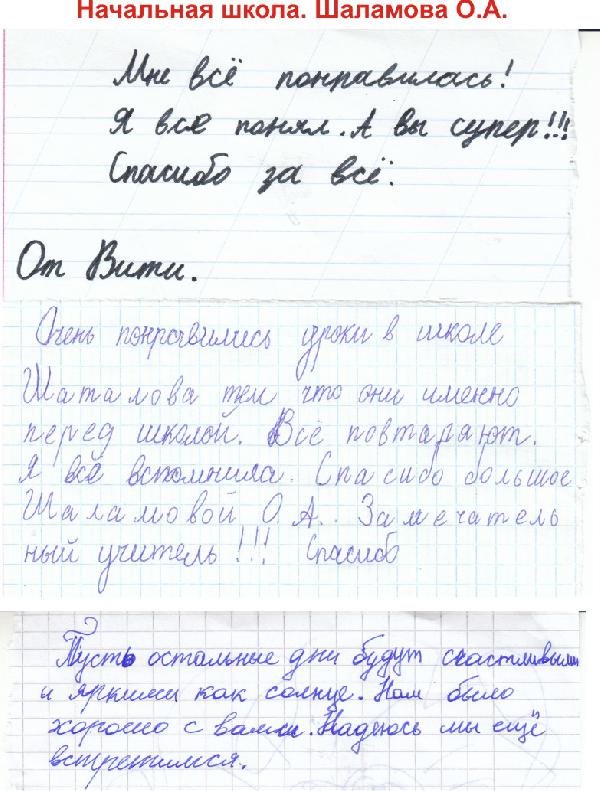 Начальная школа. Шаламова О.А.
Мне всё понравилась!
Я все понял. А вы супер!!!
Спасибо за всё.
От Вити.
Очень понравились уроки в школе
Шатамова тем что они именно
перед школой. Всё повтаряют.
Я всё вспомнила. Спасибо большое
Шаламовой О А. Замечатель
ный учитель!!! Спасибо
Пусть остальные дни будут счастливыми
и яркими как солнце. Нам было
хорошо с вами. Надеюсь мы ещё
встретимся.